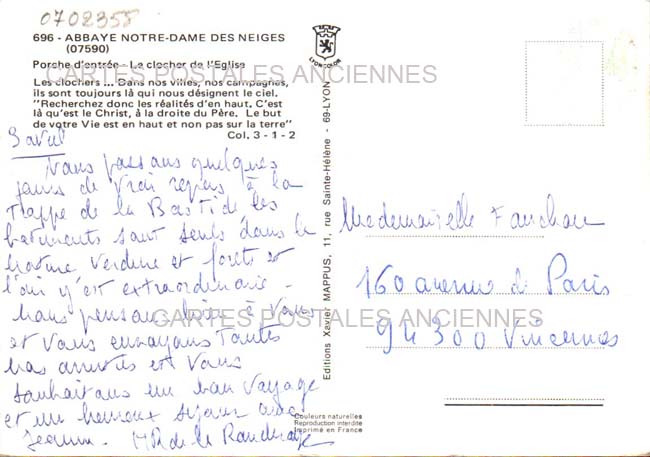 0702358
696 - ABBAYE NOTRE-DAME DES NEIGES
(07590)
Porche d'entrée - Le clocher de l'Eglise
Les clochers ... Dans nos villes, nos campagnes,
ils sont toujours là qui nous désignent le ciel.
"Recherchez donc les réalités d'en haut. C'est
là qu'est le Christ, à la droite du Père. Le but
de votre Vie est en haut et non pas sur la terre"
Col. 3-1-2
CARTES POSTALES ANCIENNES
3 avril
Nous passons quelques
jours de vrai repos à la
Trappe de la Bastide les
batiments sont seuls dans la
nature verdure et forets et
l'air y'est extraordinaire.
nous pensons bien à vous
et vous envoyons toutes
nos amitiés et vous
souhaitons un bon voyage
et un heureux séjour avec
MR de la
LYONCOLOR
Editions Xavier MAPPUS, 11, rue Sainte-Hélène - 69-LYON
Couleurs naturelles
Reproduction interdite
Imprimé en France
Mademoiselle Fanchou
160 avenue de Paris
94300 Vincennes
CARTES POSTALES ANCIENNES